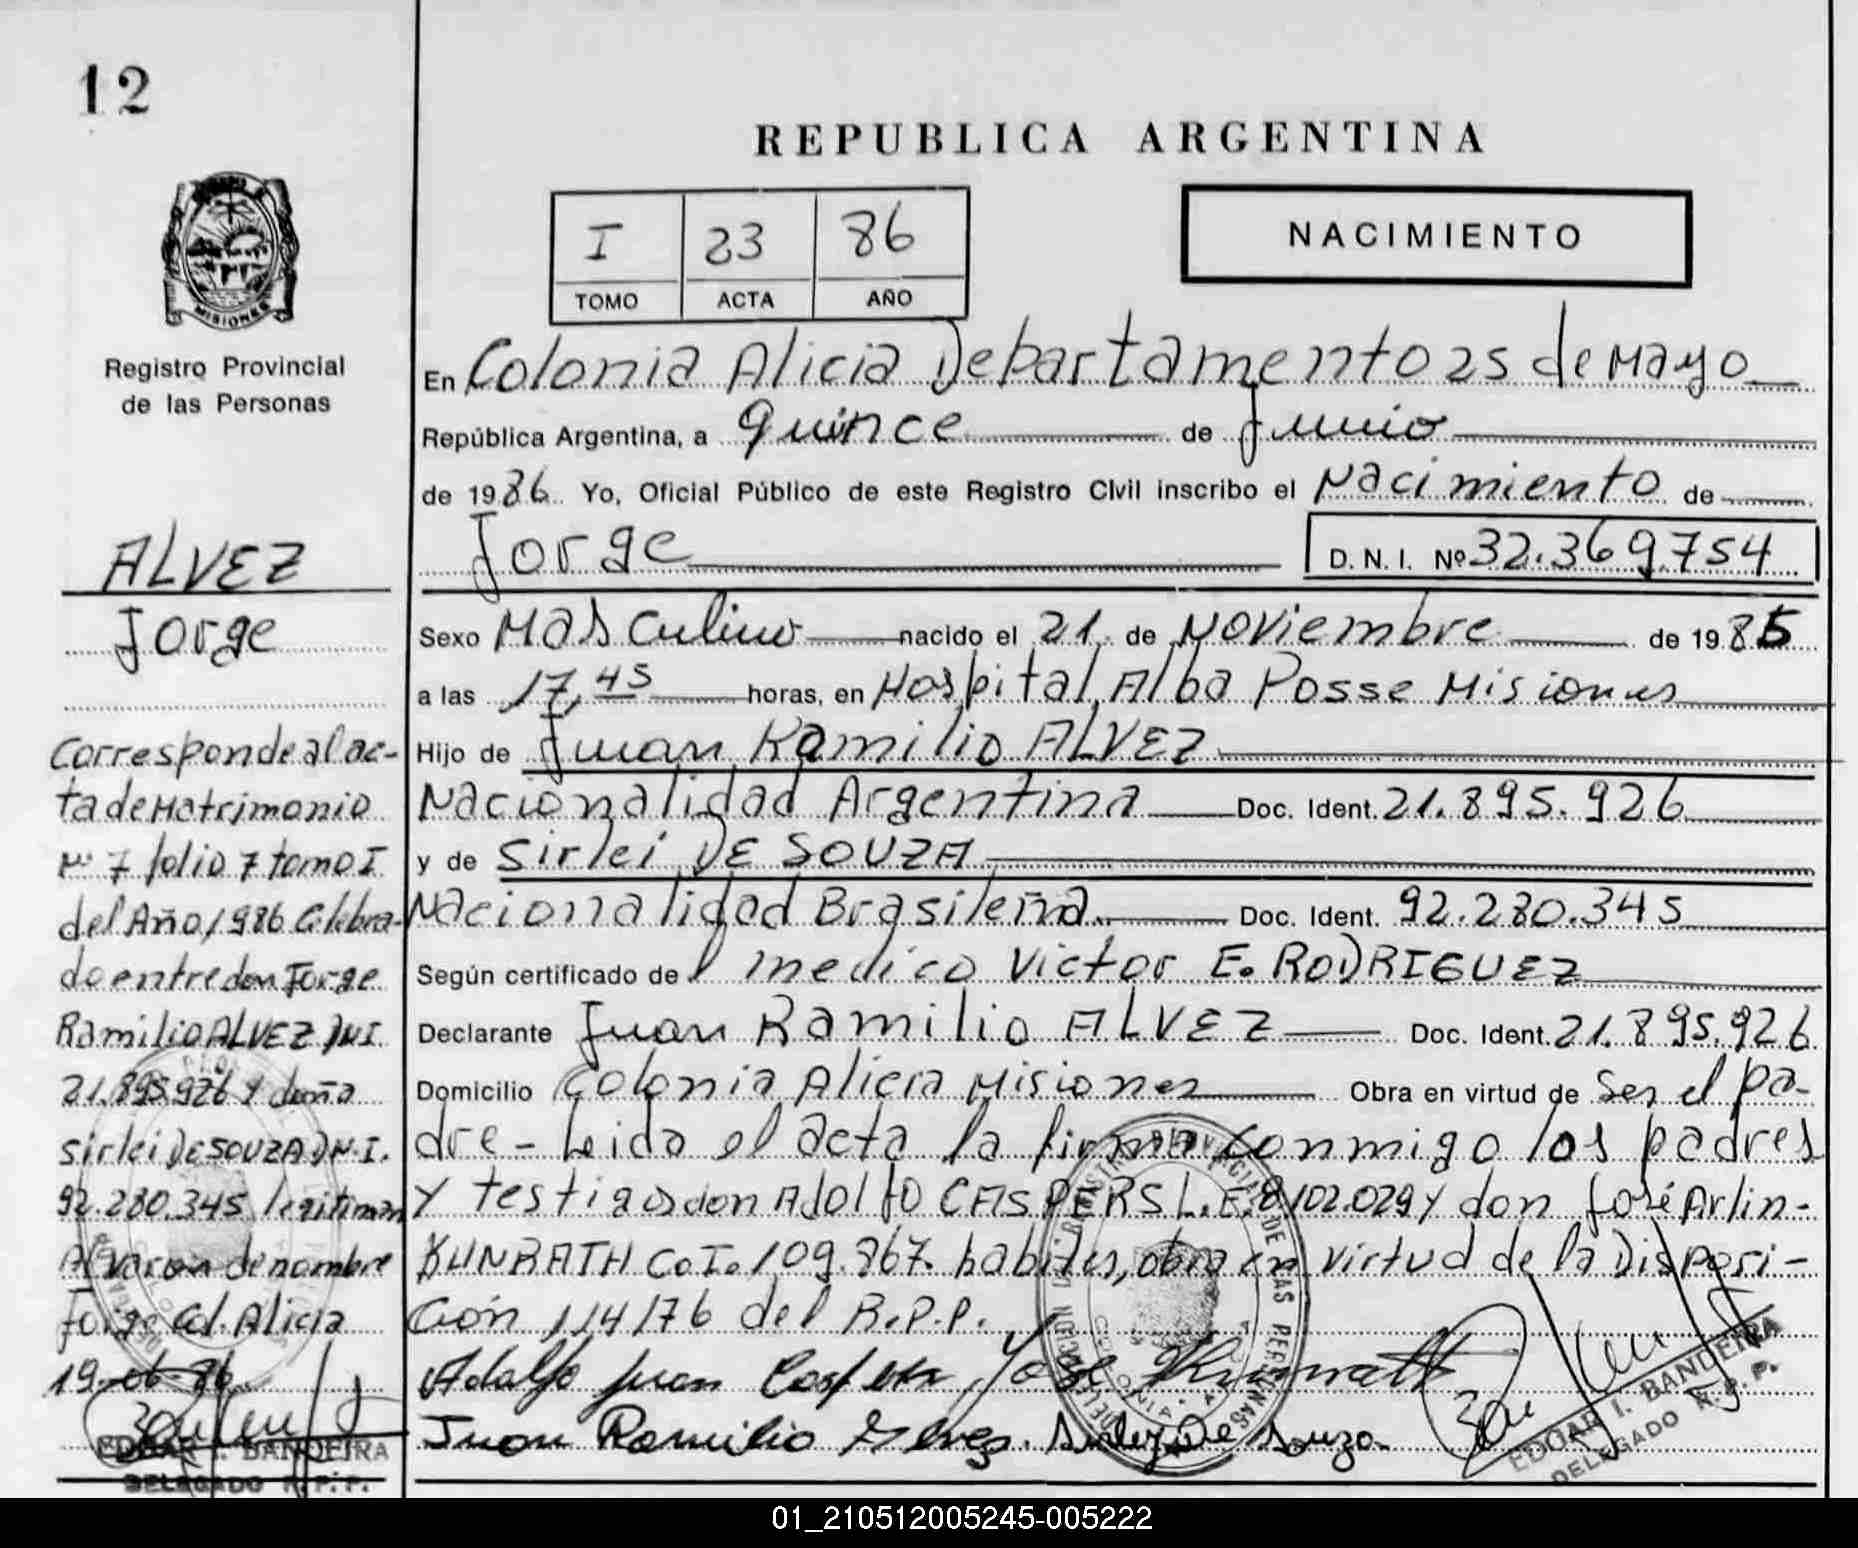 12
REPUBLICA ARGENTINA
I 23 86
TOMO ACTA AÑO
NACIMIENTO
MISIONES
Registro Provincial
de las Personas
En Colonia Alicia Departamento 25 de Mayo
República Argentina, a quince de Junio
de 1986 Yo, Oficial Público de este Registro Civil inscribo el Nacimiento de
Jorge D. N. I. Nº 32.369.754
Sexo Masculino nacido el 21 de Noviembre de 1985
a las 17,45 horas, en Hospital Alba Posse Misiones
Hijo de Juan Ramilio ALVEZ
Nacionalidad Argentina Doc. Ident. 21.895.926
y de Sirlei DE SOUZA
Nacionalidad Brasileña Doc. Ident. 92.280.345
Según certificado del medico Victor E. RODRIGUEZ
Declarante Juan Ramilio ALVEZ Doc. Ident. 21.895.926
Domicilio Colonia Alicia Misiones Obra en virtud de Ser el pa-
dre - Leido el acta la firman conmigo los padres
y testigos don Adolfo CASPERS L.E. 8102.029 y don José Arlin-
KUNRATH C.I. 109.867. habiles, obra en virtud de la Disposi-
ción 114/76 del R.P.P.
Adolfo Juan Caspers José Kunrath
Juan Ramilio Alvez. Sirlei De Souza
EDGAR I. BANDEIRA
DELEGADO R. P. P.
ALVEZ
Jorge
Corresponde al ac-
ta de Matrimonio
Nº 7 folio 7 tomo I
del Año 1986 Celebra-
do entre don Jorge
Ramilio ALVEZ DNI
21.895.926 y doña
Sirlei DE SOUZA D.N.I.
92.280.345 legitiman
Al varon de nombre
Jorge Col. Alicia
19-06-86
EDGAR I. BANDEIRA
DELEGADO R. P. P.
01_210512005245-005222